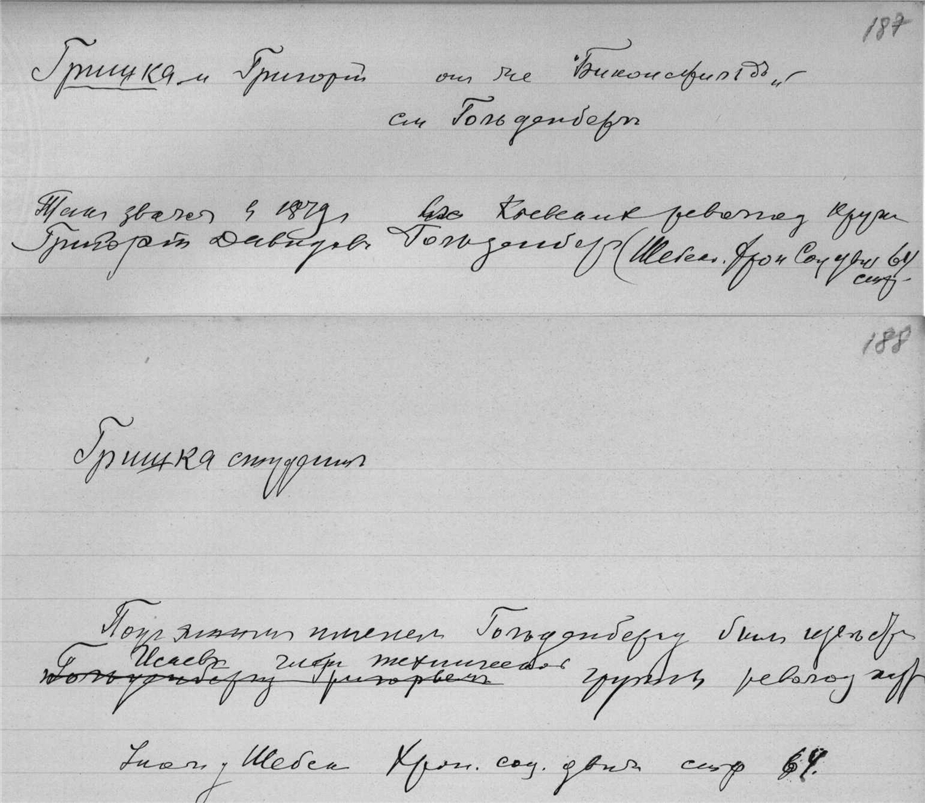 187
Гришка и Григорий он же "Биконсфильд"
см Гольденберг
Так звался в 1879 г Киевских революц кружк
Григорий Давидов Гольденберг (Шебек. Хрон Соц движ 64
стр.
188
Гришка студент
Под этим именем Гольденбергу был известен
Исаев член технической
Гольденбергу Григорьем группы революц
Шебек Хрон. соц. движ стр 64.